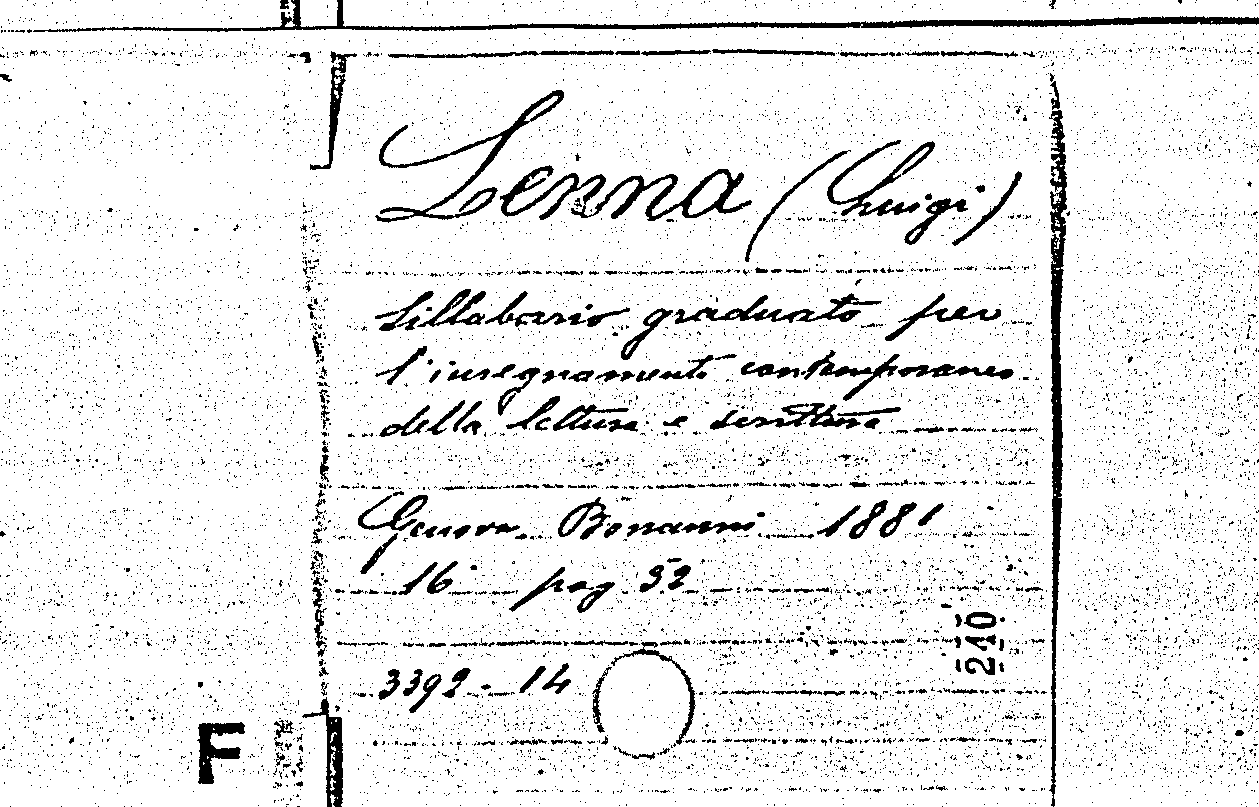 Lenna (Luigi)
Sillabario graduato per
l'insegnamento contemporaneo
della lettura e scrittura
Genova. Bonanni 1881
16° pag 52
240
3392 - 14
F